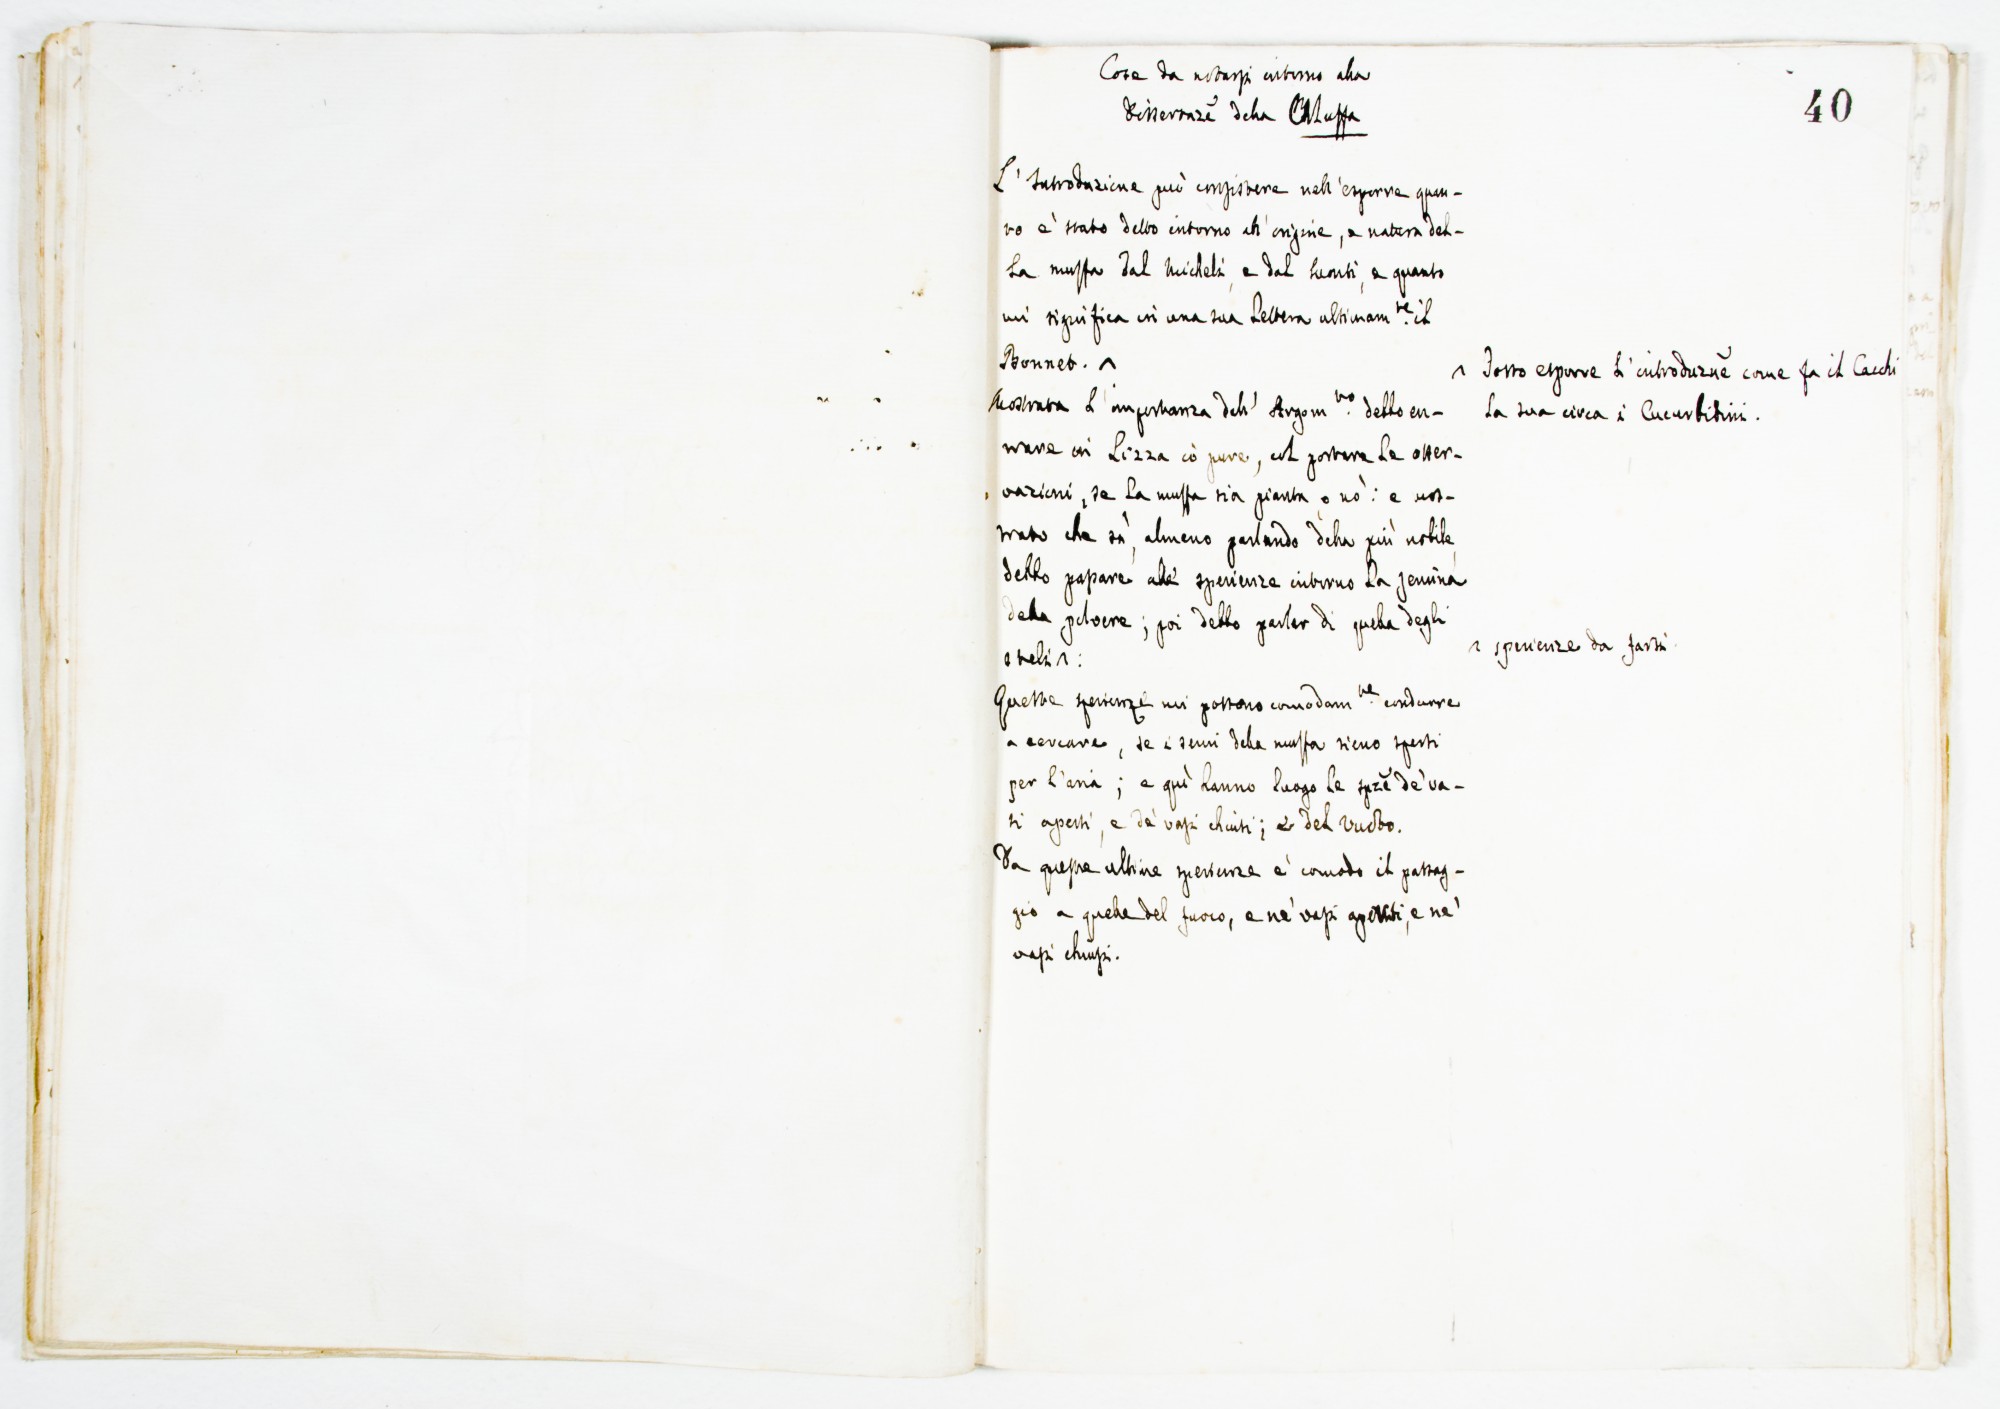 40
Cose da notarsi intorno alla
Dissertazẽ della Muffa
L' Introduzione può consistere nell'esporre quan-
to è stato detto intorno all'origine, e natura del-
la muffa dal Micheli, e dal Monti, e quanto
mi significa in una sua lettera ultimam.te il
Bonnet. ^
^ Posso esporre l'introduznẽ come fa il Cacchi
la sua circa i Cucurbitini.
Mostrata l'importanza dell' Argom.to debbo en-
trare in lizza col portare le osser-
vazioni, se la muffa sia pianta, o nò: e mos-
trato che sì, almeno parlando della più nobile,
debbo passare alle sperienze intorno la semina
della polvere; poi debbo parlar di quella degli
steli ^:
^ sperienze da farsi.
Queste sperienze mi possono comodam.te condurre
a cercare, se i semi della muffa sieno sparsi
per l'aria; e quì hanno luogo le spzẽ de' va-
si aperti, e de' vasi chiusi; e del vuoto.
Da queste ultime sperienze è comodo il passag-
gio a quelle del fuoco, e ne' vasi aperti, e ne'
vasi chiusi.